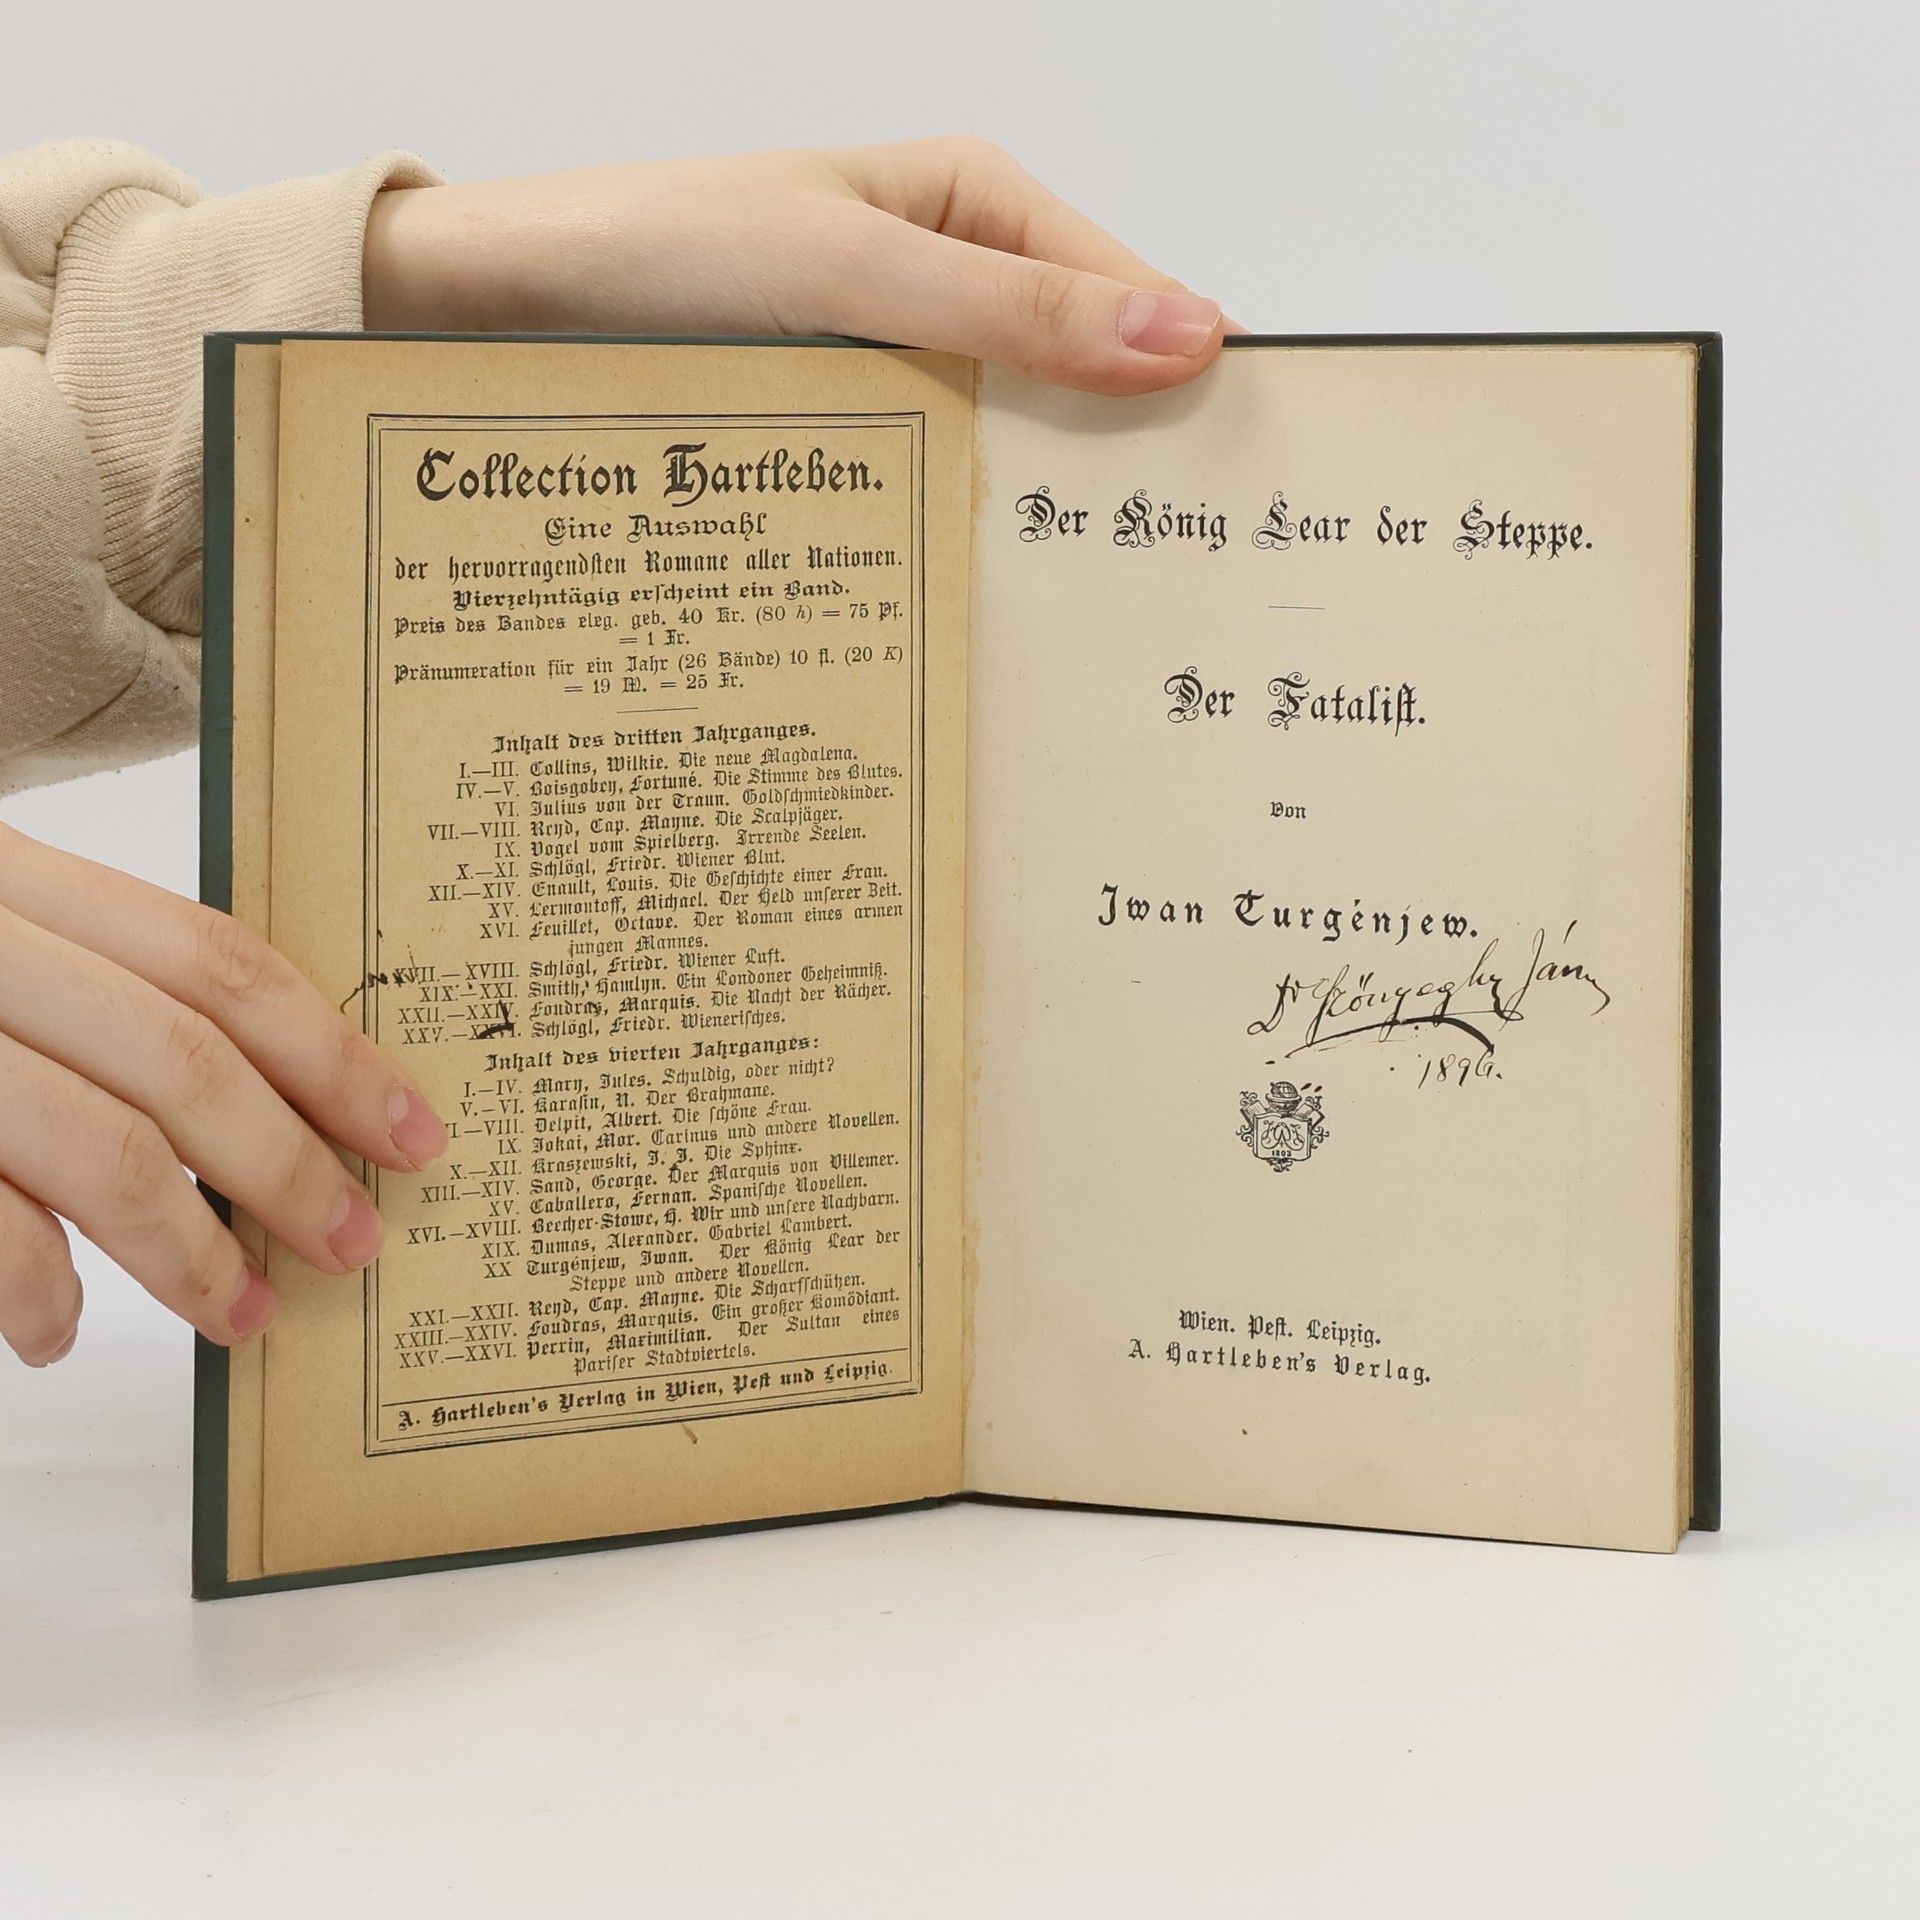 Collection Hartleben.
Eine Auswahl
der hervorragendsten Romane aller Nationen.
Vierzehntägig erscheint ein Band.
Preis des Bandes eleg. geb. 40 Kr. (80 h) = 75 Pf.
= 1 Fr.
Pränumeration für ein Jahr (26 Bände) 10 fl. (20 K)
= 19 M. = 25 Fr.
Inhalt des dritten Jahrganges.
I.—III. Collins, Wilkie. Die neue Magdalena.
IV.—V. Boisgobey, Fortuné. Die Stimme des Blutes.
VI. Julius von der Traun. Goldschmiedkinder.
VII.—VIII. Reyd, Cap. Mayne. Die Scalpjäger.
IX. Vogel vom Spielberg. Irrende Seelen.
X.—XI. Schlögl, Friedr. Wiener Blut.
XII.—XIV. Enault, Louis. Die Geschichte einer Frau.
XV. Lermontoff, Michael. Der Held unserer Zeit.
XVI. Feuillet, Octave. Der Roman eines armen
jungen Mannes.
XVII.—XVIII. Schlögl, Friedr. Wiener Luft.
XIX.—XXI. Smith, Hamlyn. Ein Londoner Geheimniß.
XXII.—XXIV. Foudras, Marquis. Die Nacht der Rächer.
XXV.—XXVI. Schlögl, Friedr. Wienerisches.
Inhalt des vierten Jahrganges:
I.—IV. Mary, Jules. Schuldig, oder nicht?
V.—VI. Karasin, N. Der Brahmane.
I.—VIII. Delpit, Albert. Die schöne Frau.
IX. Jokai, Mor. Carinus und andere Novellen.
X.—XII. Kraszewski, J. J. Die Sphinx.
XIII.—XIV. Sand, George. Der Marquis von Villemer.
XV. Caballero, Fernan. Spanische Novellen.
XVI.—XVIII. Beecher-Stowe, H. Wir und unsere Nachbarn.
XIX. Dumas, Alexander. Gabriel Lambert.
XX Turgénjew, Iwan. Der König Lear der
Steppe und andere Novellen.
XXI.—XXII. Reyd, Cap. Mayne. Die Scharfschützen.
XXIII.—XXIV. Foudras, Marquis. Ein großer Komödiant.
XXV.—XXVI. Perrin, Maximilian. Der Sultan eines
Pariser Stadtviertels.
A. Hartleben's Verlag in Wien, Pest und Leipzig.
Der König Lear der Steppe.
Der Fatalist.
Von
Iwan Turgénjew.
Dr Szönyeghy János
1896.
1803
Wien. Pest. Leipzig.
A. Hartleben's Verlag.